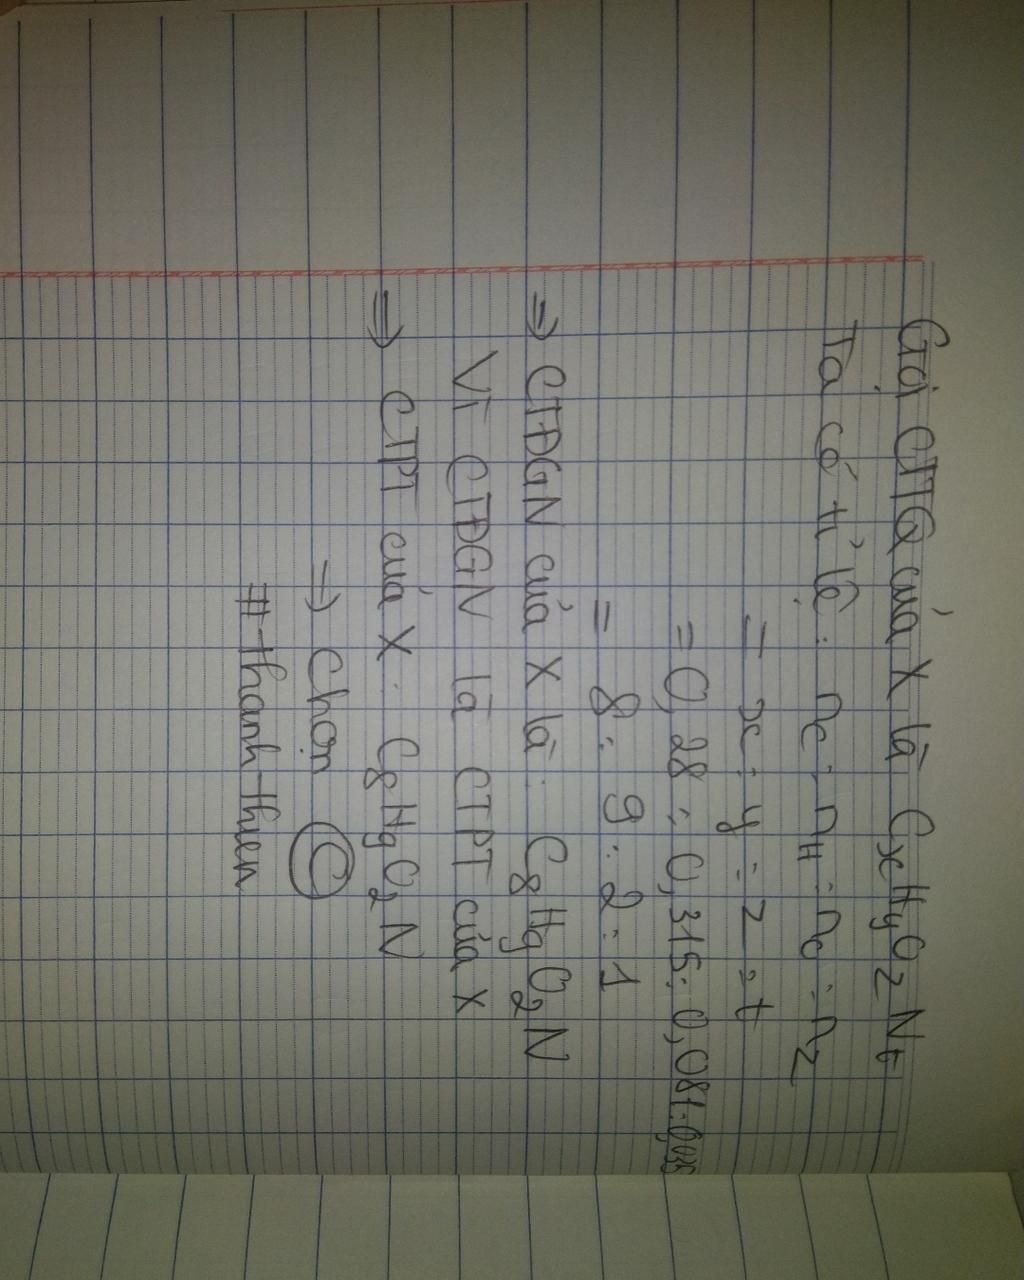 Gọi CTTQ của X là CxHyOzNt
Ta có tỉ lệ: nC : nH : nO : nz
= x : y : z : t
= 0,28 : 0,315 : 0,081 : 0,035
= 8 : 9 : 2 : 1
⇒ CTĐGN của X là: C8H9O2N
Vì CTĐGN là CTPT của X
⇒ CTPT của X: C8H9O2N
⇒ Chọn C
#thanhthien